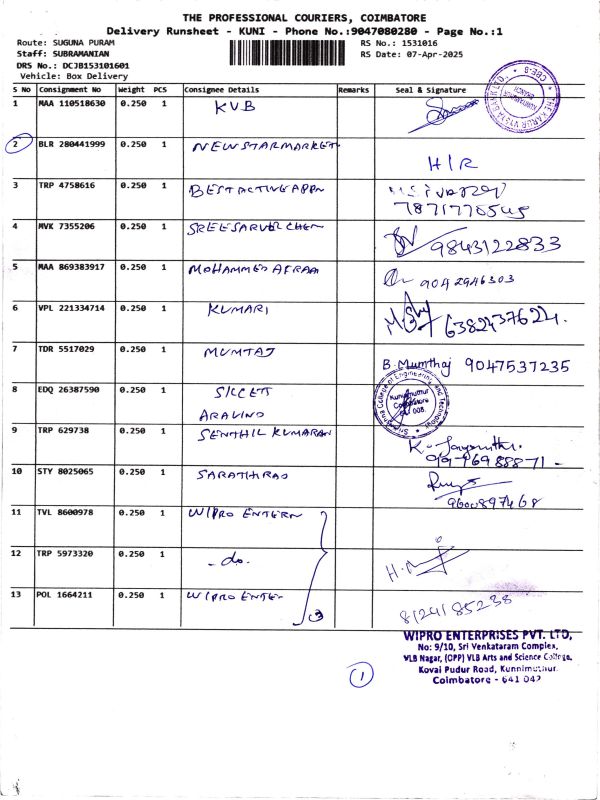 THE PROFESSIONAL COURIERS, COIMBATORE
Delivery Runsheet - KUNI - Phone No.:9047080280 - Page No.:1
Route: SUGUNA PURAM RS No.: 1531016
Staff: SUBRAMANIAN RS Date: 07-Apr-2025
DRS No.: DCJB153101601
Vehicle: Box Delivery
S No Consignment No Weight PCS Consignee Details Remarks Seal & Signature
1 MAA 110518630 0.250 1 KVB
THE KARUR VYSYA BANK LTD. CBE-8
2 BLR 280441999 0.250 1 NEWSTARMARKET H/R
3 TRP 4758616 0.250 1 BESTACTIVEAPPN
4 MVK 7355206 0.250 1 9843122833
5 MAA 869383917 0.250 1 MOHAMMED AFRAA 9042946303
6 VPL 221334714 0.250 1 KUMARI 6382437624.
7 TDR 5517029 0.250 1 MUMTAJ B. Mumthaj 9047537235
8 EDQ 26387590 0.250 1 SKCET
ARAVIND
College of Engineering and Technology
Kuniamuthur
Coimbatore
641 008.
9 TRP 629738 0.250 1 SENTHIL KUMARAN
10 STY 8025065 0.250 1 SARATHRAO
9600897468
11 TVL 8600978 0.250 1 WIPRO ENTERN
12 TRP 5973320 0.250 1 - do. H.M
13 POL 1664211 0.250 1 WIPRO ENTE- 3 8124185238
WIPRO ENTERPRISES PVT. LTD,
No: 9/10, Sri Venkataram Complex,
VLB Nagar, (OPP) VLB Arts and Science College,
Kovai Pudur Road, Kunnimuthur.
Coimbatore - 641 042
1